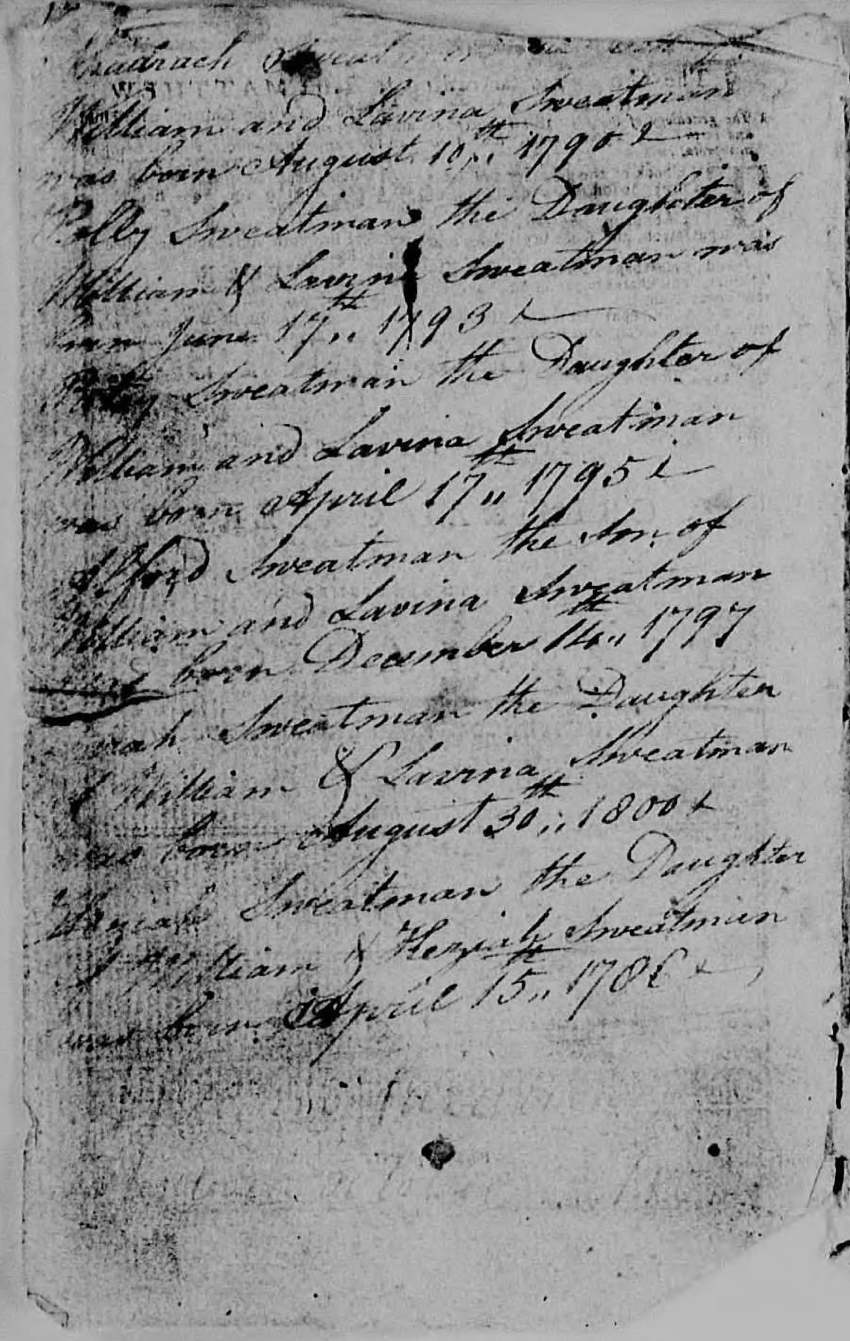 Shadrach Sweatman
William and Lavina Sweatman
was born August 10th,, 1790
Polly Sweatman the Daughter of
William & Lavina Sweatman was
born June 17th,, 1793
Sweatman the Daughter of
William and Lavina Sweatman
was born April 17th,, 1795
Alford Sweatman the Son of
William and Lavina Sweatman
was born December 14th,, 1797
Sweatman the Daughter
of William & Lavina Sweatman
was born August 30th,, 1800
Sweatman the Daughter
of William & Heziah Sweatman
was born April 15th,, 1786